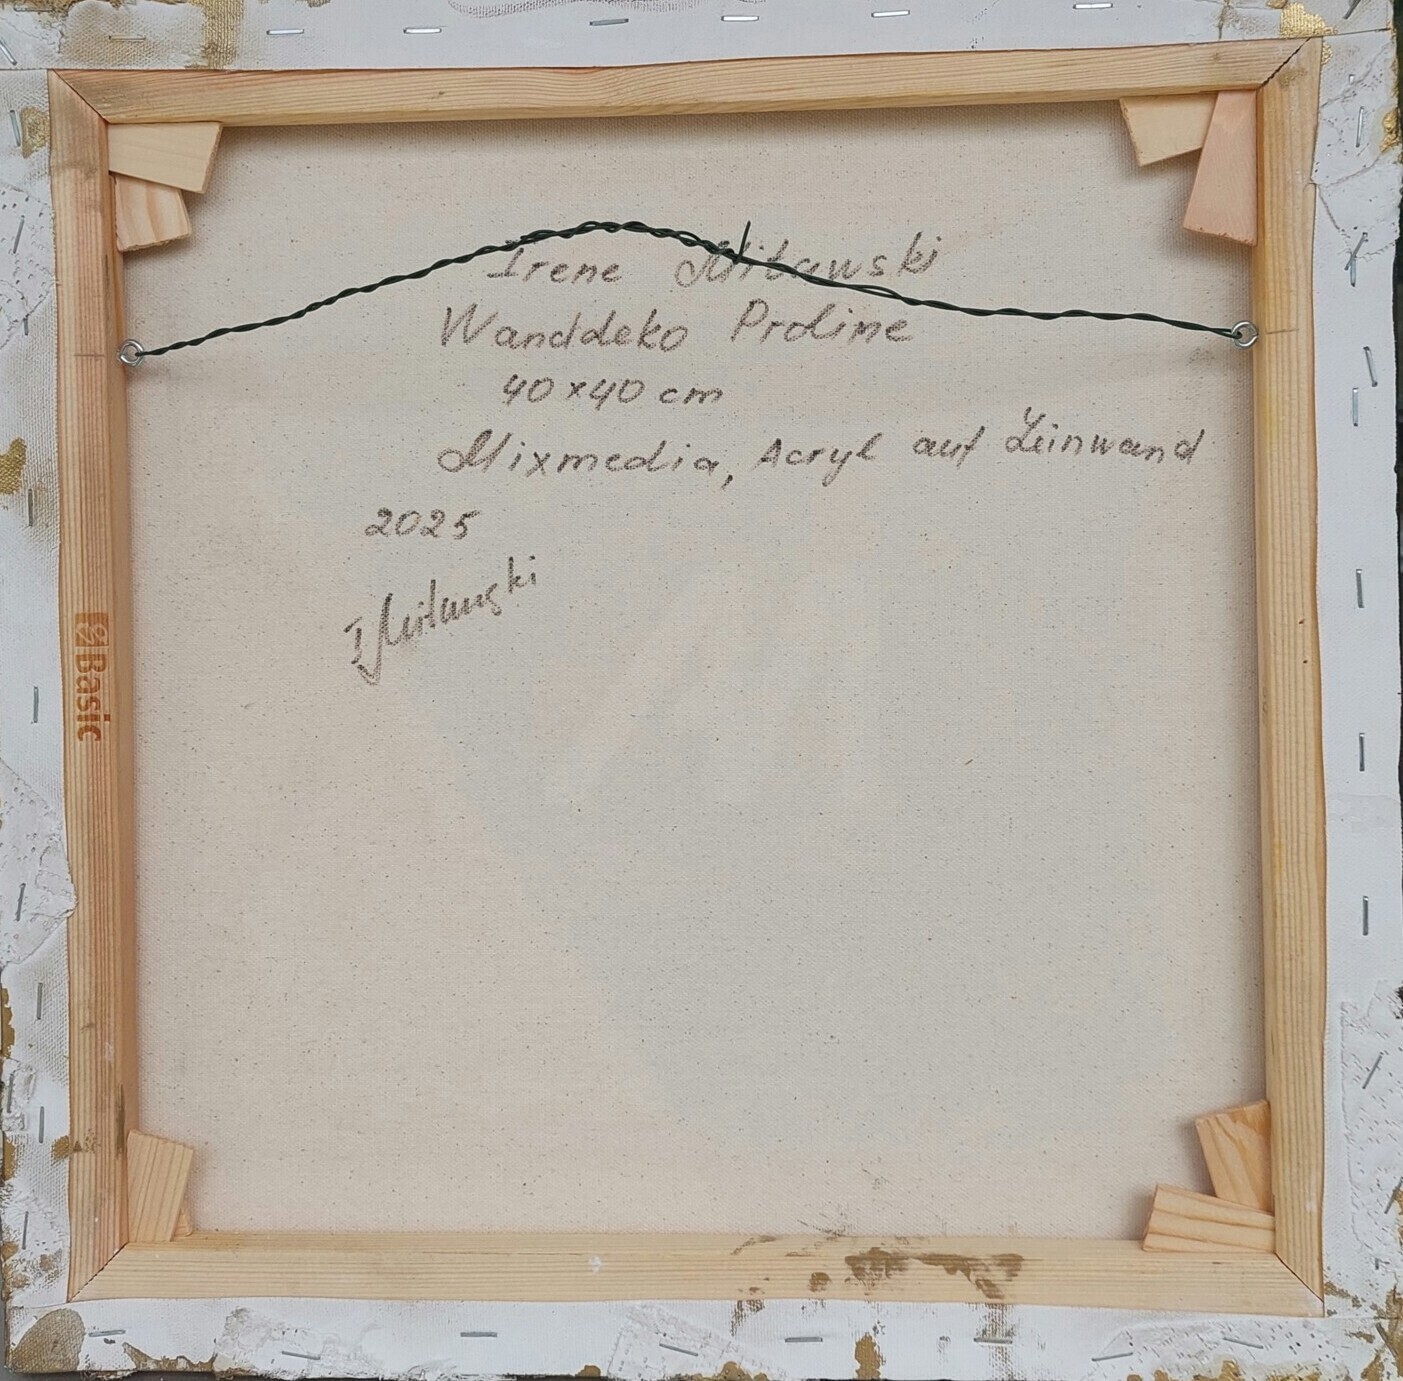 Irene Mitawski
Wanddeko Proline
40 x 40 cm
Mixmedia, Acryl auf Leinwand
2025
I Mitawski
Basic